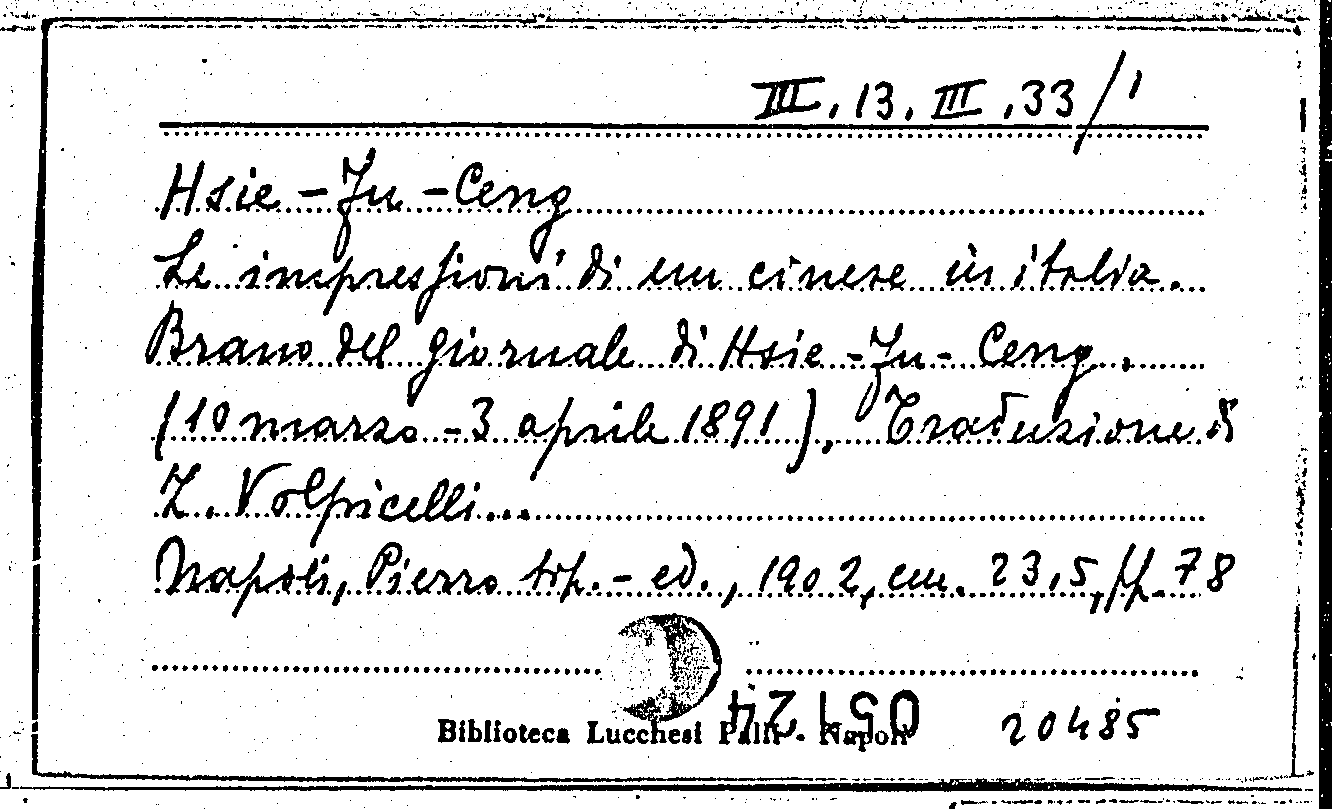 III. 13. III. 33/1
Hsie-Fu-Ceng
Le impressioni di un cinese in italia.
Brano del giornale di Hsie-Fu-Ceng.
(10 marzo - 3 aprile 1891). Traduzione di
Z. Volpicelli...
Napoli, Pierro tip.-ed., 1902, cm. 23,5, pp. 78
Biblioteca Lucchesi Palli - Napoli
20485